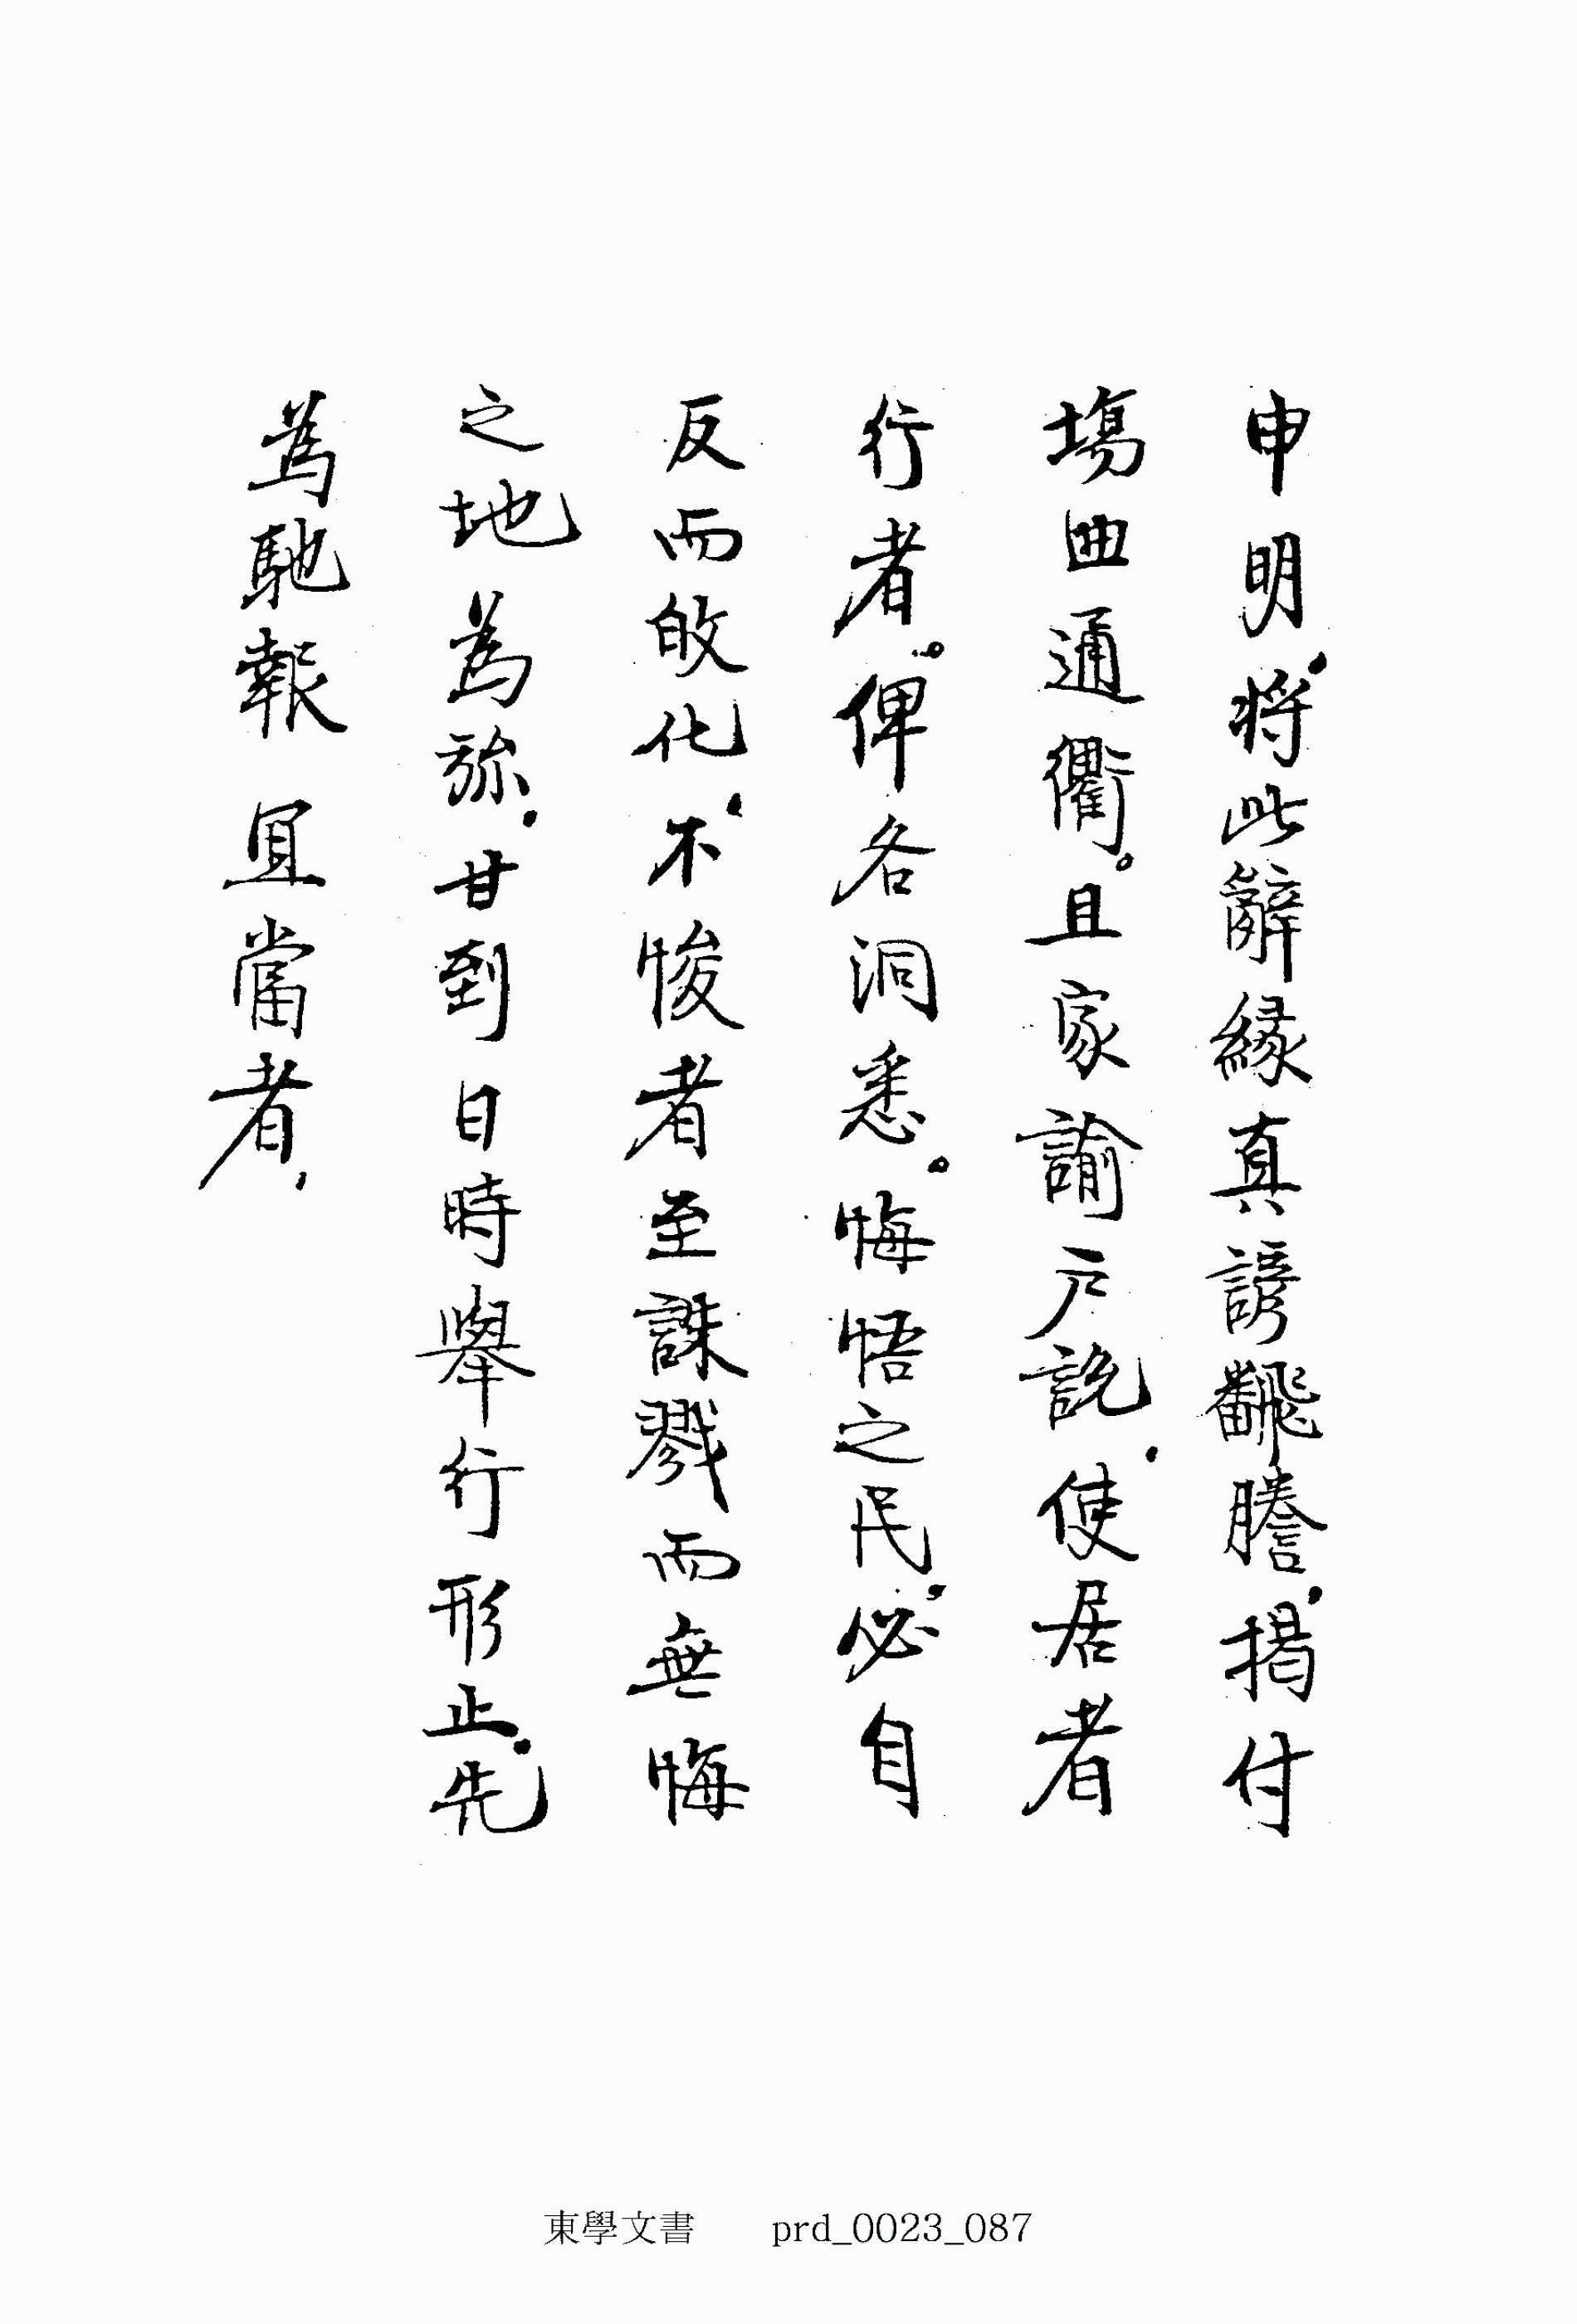 申明,將此辭緣真諺飜謄,揭付
塲曲通衢。且家諭戶說,使居者
行者。俾各洞悉。悔悟之民,必自
反而攸化,不悛者至誅戮而無悔
之地為旀,甘到日時擧行形止,先
為馳報宜當者,
東學文書 prd_0023_087